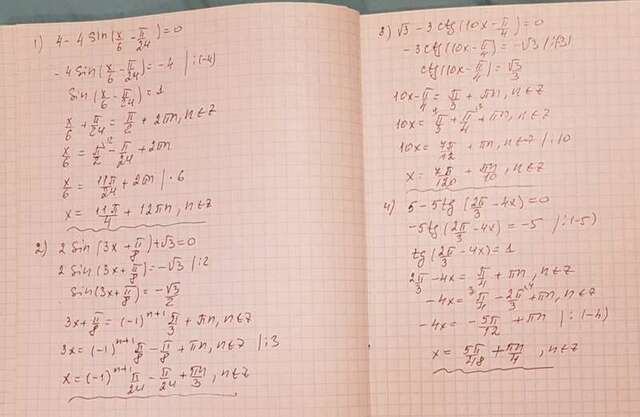 1) 4 - 4 sin(x/6 - π/24) = 0
- 4 sin(x/6 - π/24) = -4 / :(-4)
sin(x/6 - π/24) = 1
x/6 + π/24 = π/2 + 2πn, n∈Z
x/6 = π/2 - π/24 + 2πn
x/6 = 11π/24 + 2πn | · 6
x = 11π/4 + 12πn, n∈Z
2) 2 sin(3x + π/8) + √3 = 0
2 sin(3x + π/8) = -√3 /:2
sin(3x + π/8) = -√3/2
3x + π/8 = (-1)^n+1 π/3 + πn, n∈Z
3x = (-1)^n+1 π/8 - π/8 + πn, n∈Z /:3
x = (-1)^n+1 π/24 - π/24 + πn/3, n∈Z
3) √3 - 3 ctg(10x - π/4) = 0
- 3 ctg(10x - π/4) = -√3 /:(-3)
ctg(10x - π/4) = √3/3
10x - π/4 = π/3 + πn, n∈Z
10x = π/3 + π/4 + πn, n∈Z
10x = 7π/12 + πn, n∈Z /:10
x = 7π/120 + πn/10, n∈Z
4) 5 - 5 tg(2π/3 - 4x) = 0
-5 tg(2π/3 - 4x) = -5 /:(-5)
tg(2π/3 - 4x) = 1
2π/3 - 4x = π/4 + πn, n∈Z
-4x = π/4 - 2π/3 + πn, n∈Z
-4x = -5π/12 + πn /:(-4)
x = 5π/48 + πn/4, n∈Z